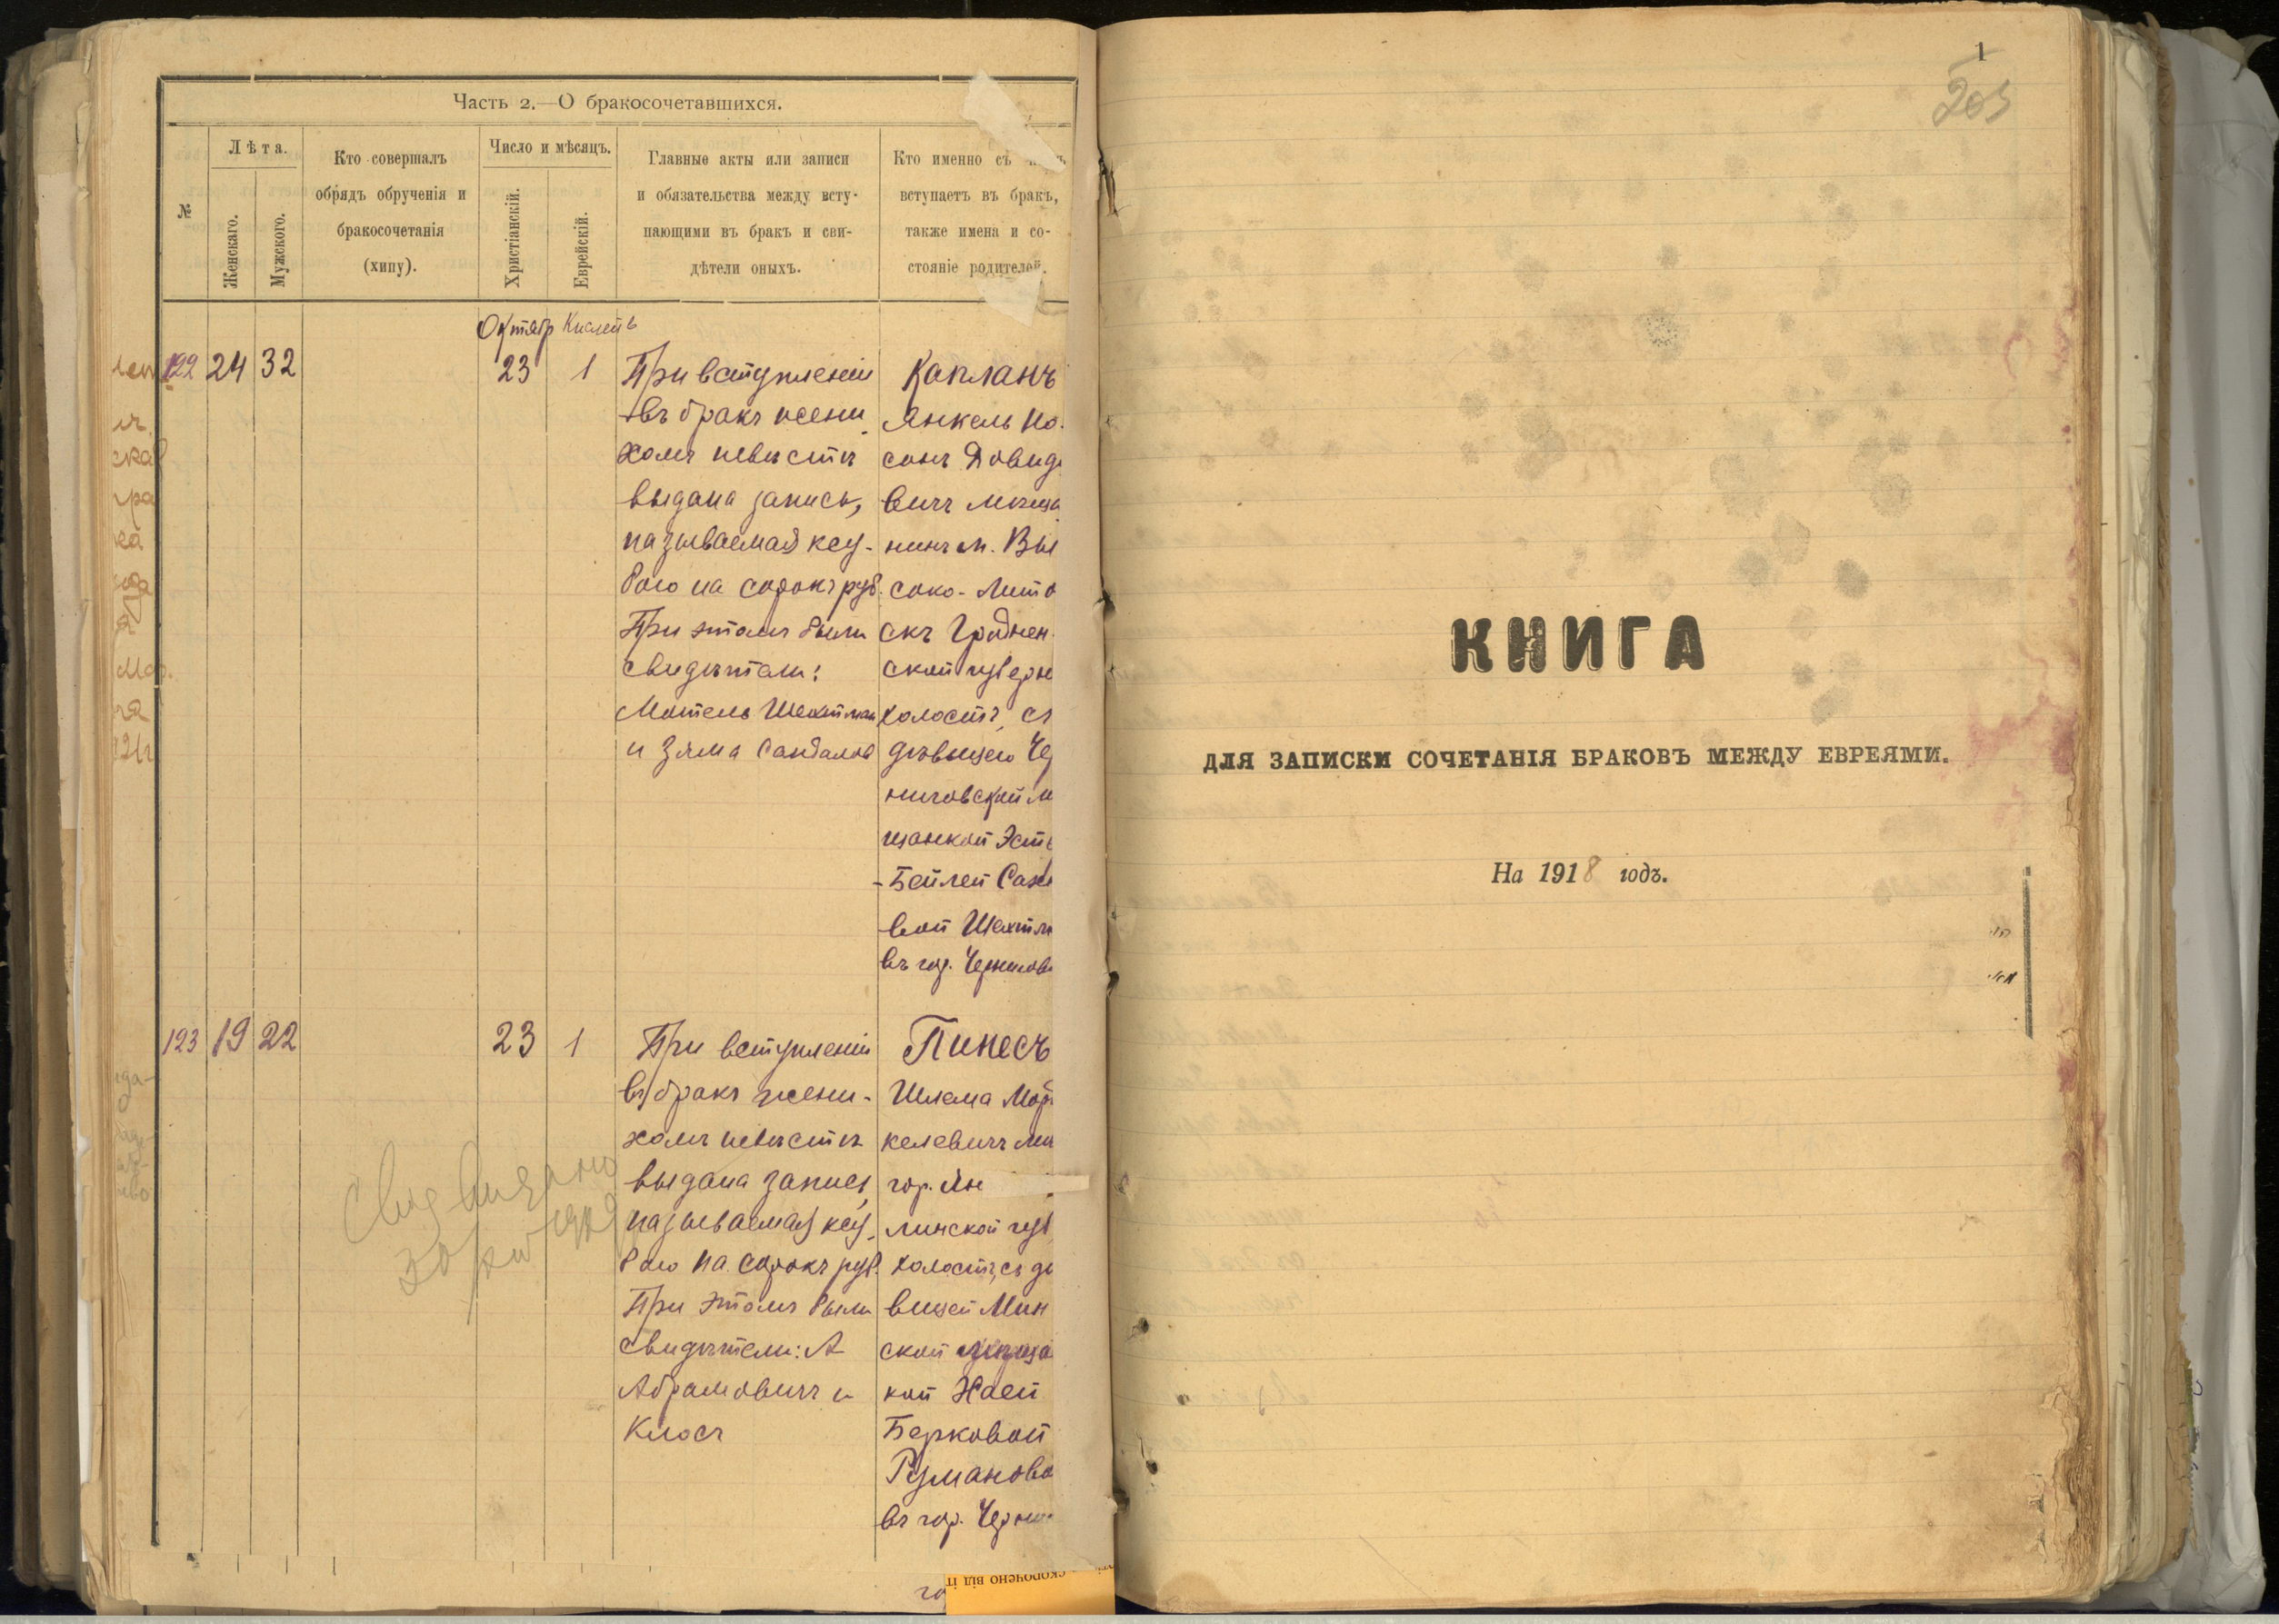 Часть 2.—О бракосочетавшихся.
№
Лѣта.
Женскаго.
Мужского.
Кто совершалъ
обрядъ обрученія и
бракосочетанія
(хипу).
Число и мѣсяцъ.
Христіанскій.
Еврейскій.
Главные акты или записи
и обязательства между всту-
пающими въ бракъ и сви-
дѣтели оныхъ.
Кто именно съ
вступаетъ въ бракъ,
также имена и со-
стояніе родителей.
Октябр Кислевъ
122 24 32 23 1
При вступленіи
въ бракъ жени-
хомъ невѣстѣ
выдана запись,
называемая ксу-
бою на сорокъ руб.
При этомъ были
свидѣтели:
Мотель Шехтман
и Зяма Сандалов
Капланъ
Янкель Но-
сонъ Довид
вичъ мѣща
нинъ м. Вы
соко-Лито
скъ Гроднен
ской губерн
холостъ, съ
дѣвицею Че
ниговской м
щанкой Эст
-Бейлей Сан
вой Шехтм
въ гор. Чернигов
123 19 22 23 1
При вступленіи
въ бракъ жени-
хомъ невѣстѣ
выдана запись,
называемая ксу-
бою на сорокъ руб.
При этомъ были
свидѣтели: А
Абрамовичъ и
Клосъ
Пинесъ
Шлема Мор
келевичъ ми
гор.
линской губ
холостъ, съ дѣ
вицей Мин
ской мѣща
кой Хаей
Берковой
Румановo
въ гор. Черни
1
203
КНИГА
ДЛЯ ЗАПИСКИ СОЧЕТАНІЯ БРАКОВЪ МЕЖДУ ЕВРЕЯМИ.
На 1918 годъ.
скорочено від її